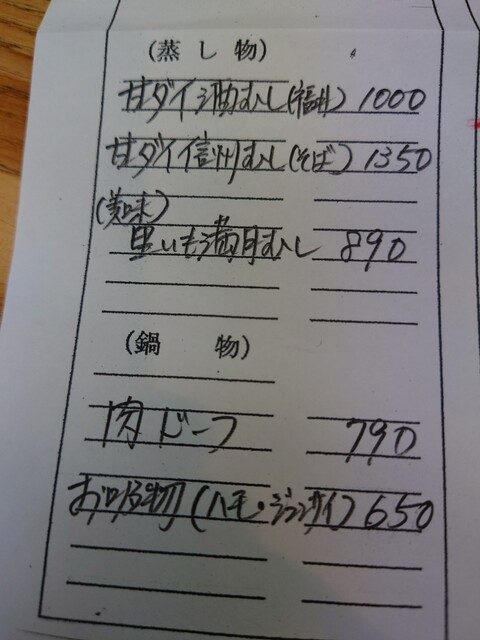 (蒸し物)
甘ダイ酒むし(福井) 1000
甘ダイ信州むし(そば) 1350
(美味)
里いも満月むし 890
(鍋 物)
肉ドーフ 790
お吸物(ハモ・ジュンサイ) 650